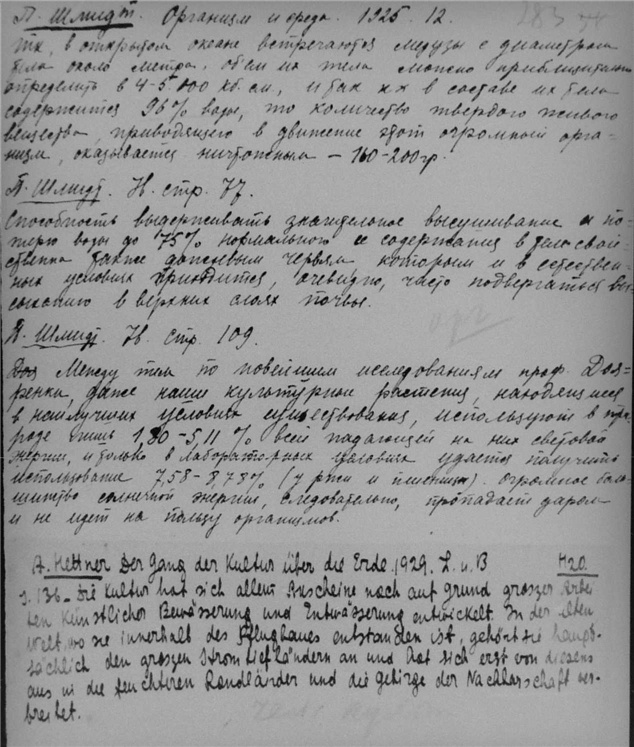 П. Шмидт. Организм и среда. 1925. 12.
тк, в открытом океане встречаются медузы с диаметром
тела около метра. объем их тела можно приблизительно
определить в 4-5.000 кб. см., и так как в составе их тела
содержится 96% воды, то количество твердого живого
вещества, приводящего в движение этот огромный орга-
низм, оказывается ничтожным – 160-200 гр.
П. Шмидт. Н. стр. 77.
Способность выдерживать значительное высушивание и по-
терю воды до 75% нормального ее содержания в теле свой-
ственна также дождевым червям которым и в естествен-
ных условиях приходится, очевидно, часто подвергаться вы-
сыханию в верхних слоях почвы.
П. Шмидт. Н. стр. 109.
Между тем по новейшим исследованиям проф. Доя-
ренки, даже наши культурные растения, находящиеся
в наилучших условиях существования, используют в при-
роде лишь 1,80-5,11% всей падающей на них световой
энергии, и только в лабораторных условиях удается получить
использование 7,58-8,78% (у ржи и пшеницы). Огромное боль-
шинство солнечной энергии, следовательно, пропадает даром
и не идет на пользу организмов.
A. Hettner Der Gang der Kultur über die Erde. 1929. L. u. B H20
S. 136 – Die Kultur hat sich allem Anscheine nach auf Grund grosser Arbei
ten künstlicher Bewässerung und Entwässerung entwickelt. In der alten
Welt, wo sie innerhalb des Pflugbaues entstanden ist, gehört sie haupt-
sächlich den grossen Stromtiefländern an und hat sich erst von diesen
aus in die feuchteren Randländer und die Gebirge der Nachbarschaft ver-
breitet.